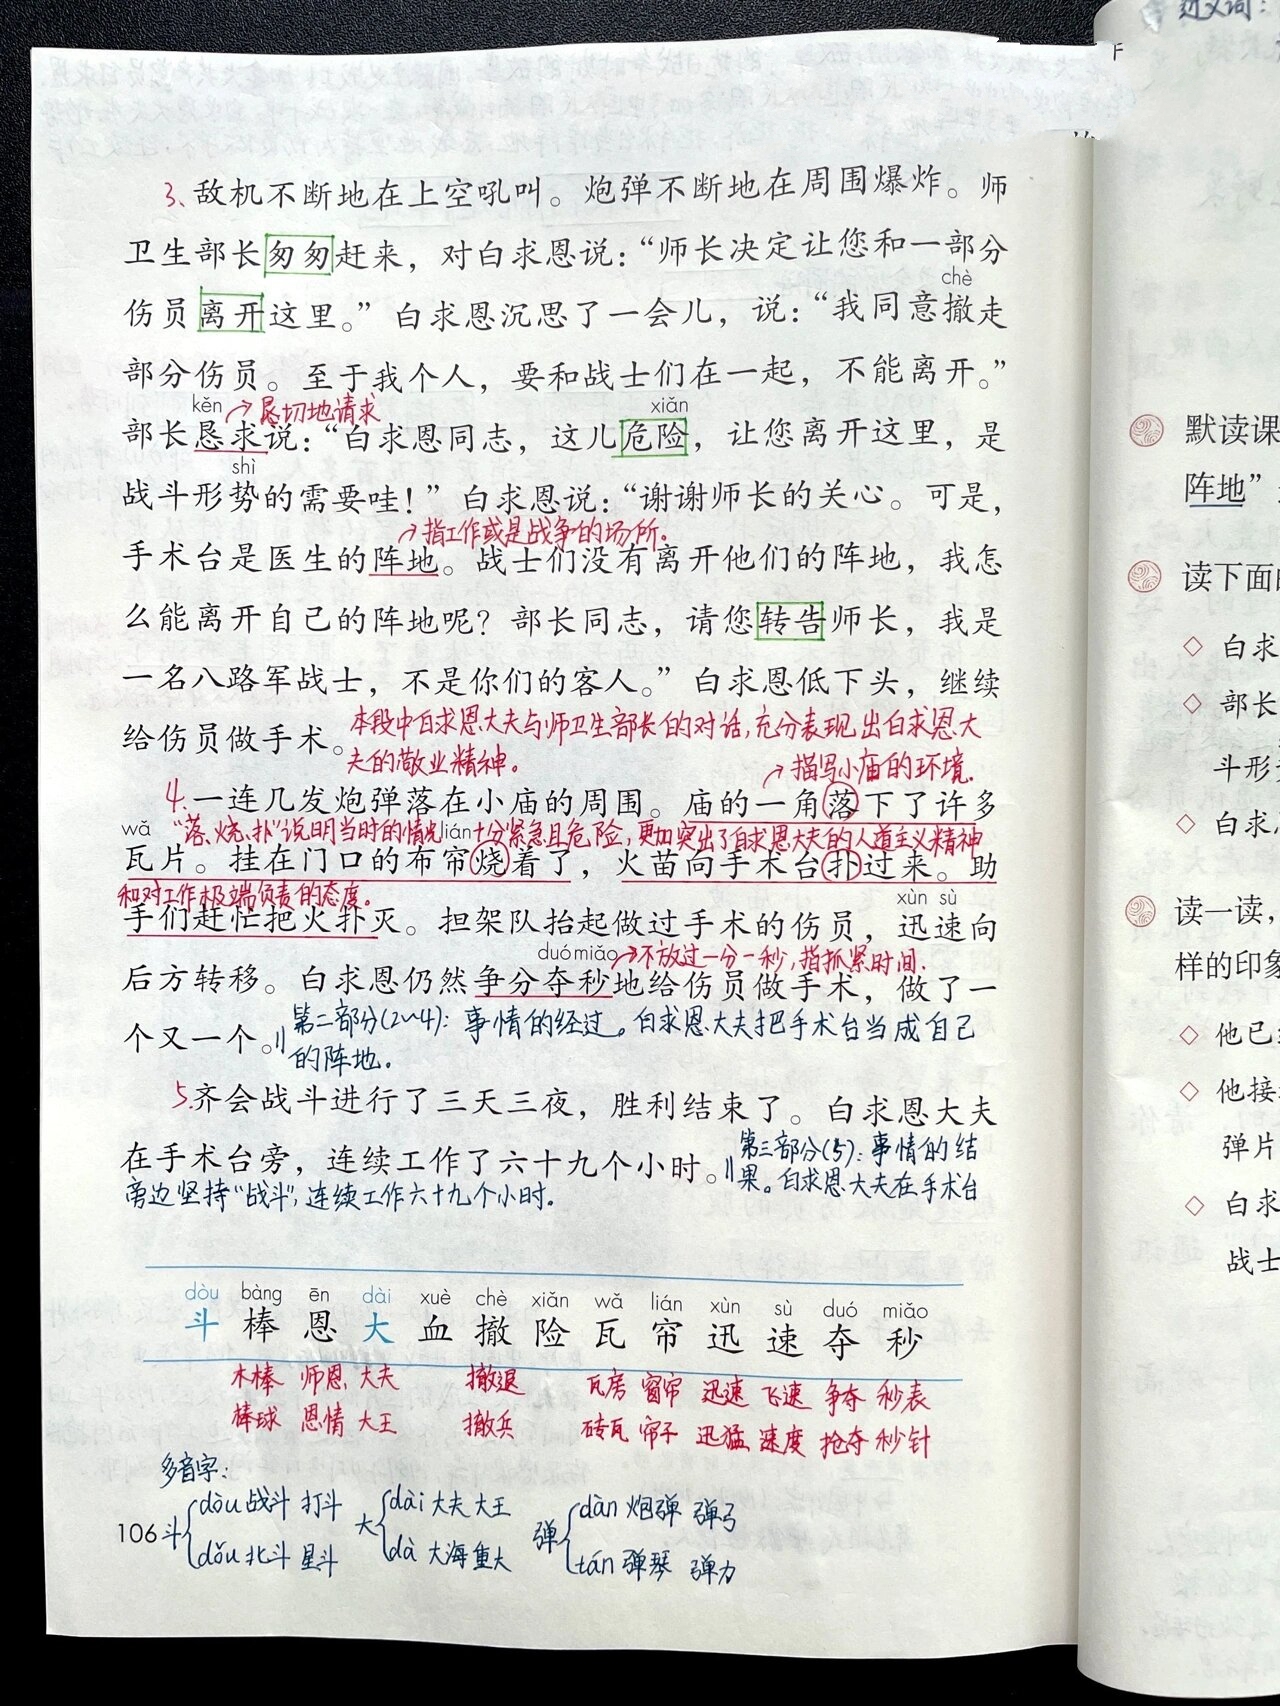 近义词：
3、敌机不断地在上空吼叫。炮弹不断地在周围爆炸。师
卫生部长匆匆赶来，对白求恩说：“师长决定让您和一部分
chè
伤员离开这里。”白求恩沉思了一会儿，说：“我同意撤走
部分伤员。至于我个人，要和战士们在一起，不能离开。”
kěn 恳切地请求 xiǎn
部长恳求说：“白求恩同志，这儿危险，让您离开这里，是
shì
战斗形势的需要哇！”白求恩说：“谢谢师长的关心。可是，
指工作或是战争的场所。
手术台是医生的阵地。战士们没有离开他们的阵地，我怎
么能离开自己的阵地呢？部长同志，请您转告师长，我是
一名八路军战士，不是你们的客人。”白求恩低下头，继续
给伤员做手术。
本段中白求恩大夫与师卫生部长的对话，充分表现出白求恩大
夫的敬业精神。
描写小庙的环境.
4.一连几发炮弹落在小庙的周围。庙的一角落下了许多
wǎ lián
“落、烧、扑”说明当时的情况十分紧急且危险，更加突出了白求恩大夫的人道主义精神
瓦片。挂在门口的布帘烧着了，火苗向手术台扑过来。助
和对工作极端负责的态度。
xùn sù
手们赶忙把火扑灭。担架队抬起做过手术的伤员，迅速向
duó miǎo 不放过一分一秒，指抓紧时间.
后方转移。白求恩仍然争分夺秒地给伤员做手术，做了一
个又一个。
第二部分（2~4）：事情的经过。白求恩大夫把手术台当成自己
的阵地.
5.齐会战斗进行了三天三夜，胜利结束了。白求恩大夫
在手术台旁，连续工作了六十九个小时。
第三部分（5）：事情的结
果。白求恩大夫在手术台
旁边坚持“战斗”，连续工作六十九个小时.
dòu bàng ēn dài xuè chè xiǎn wǎ lián xùn sù duó miǎo
斗 棒 恩 大 血 撤 险 瓦 帘 迅 速 夺 秒
木棒 师恩 大夫 撤退 瓦房 窗帘 迅速 飞速 争夺 秒表
棒球 恩情 大王 撤兵 砖瓦 帘子 迅猛 速度 抢夺 秒针
多音字：
斗 dòu 战斗 打斗
dǒu 北斗 星斗
大 dài 大夫 大王
dà 大海 重大
弹 dàn 炮弹 弹弓
tán 弹琴 弹力
106
默读课
阵地”
读下面的
白求
部长
斗形
白求
读一读，
样的印象
他已
他接
弹片
白求
战士